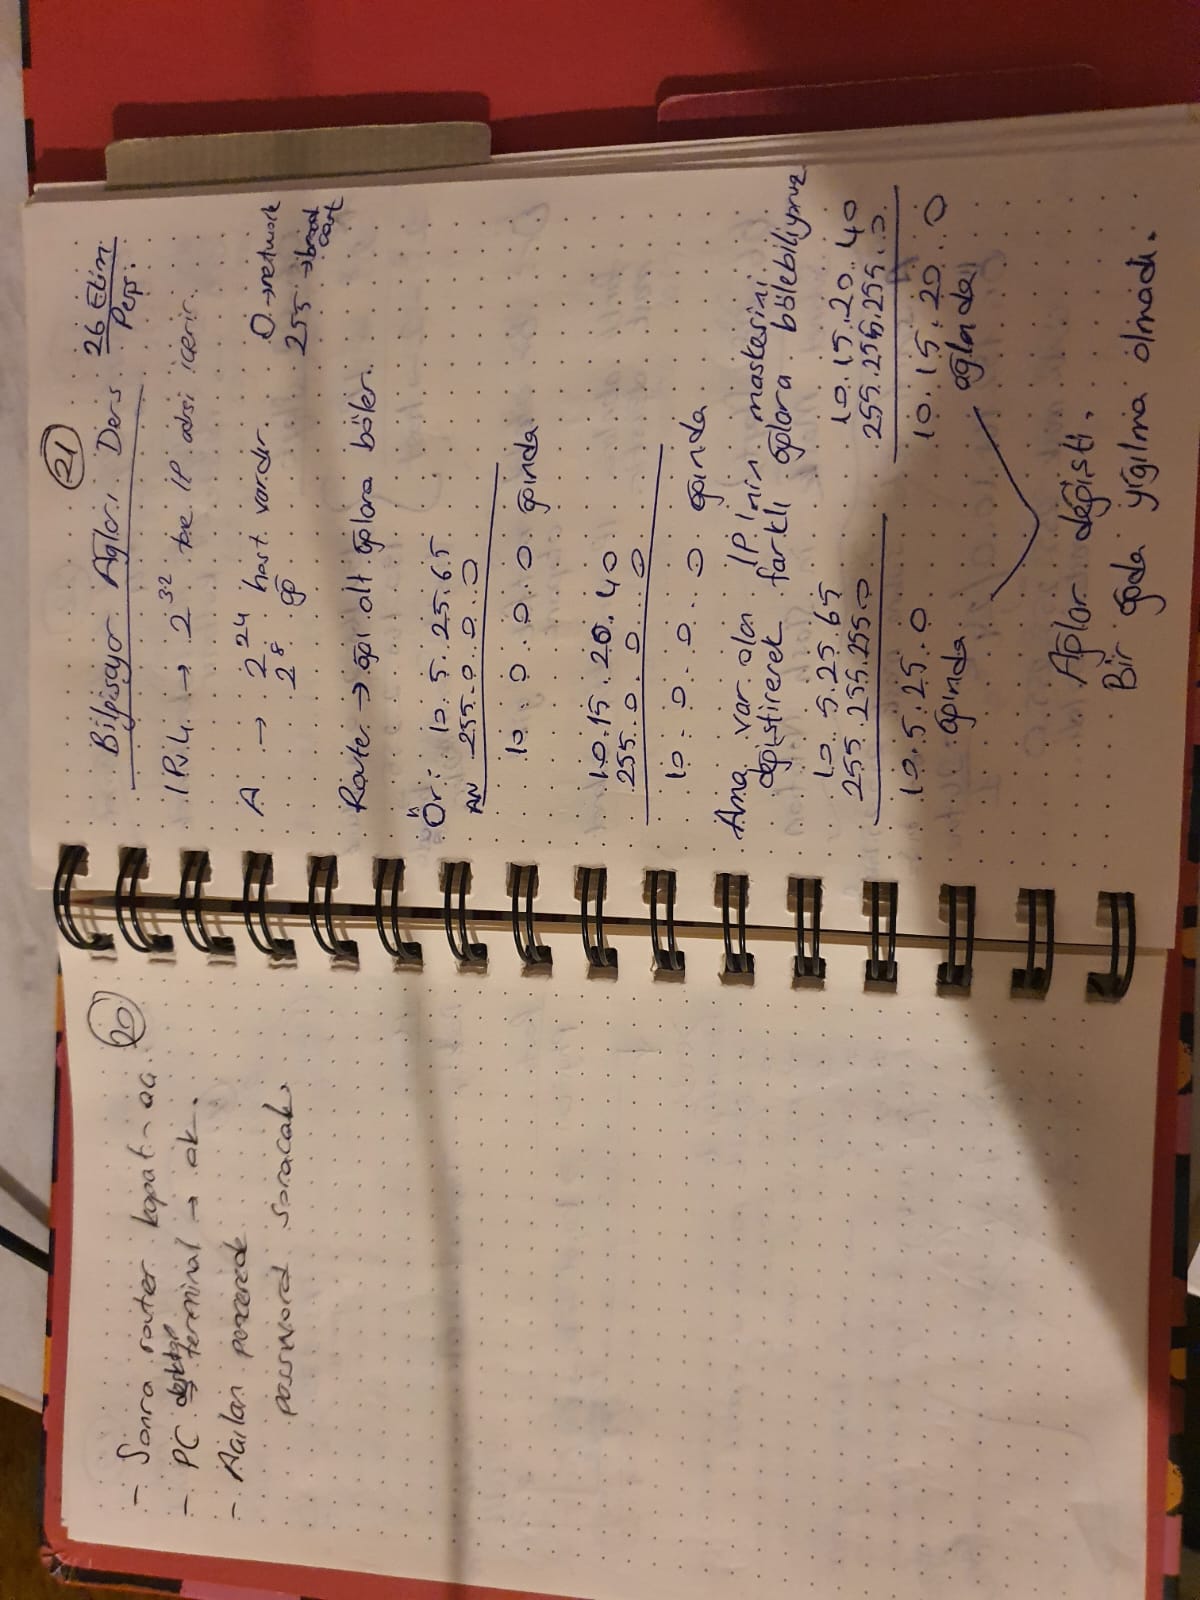 20
- Sonra router kapat-aç.
- PC desktop → terminal → ok.
- Açılan pencerede
password soracak.
21
Bilgisayar Ağları Ders 26 Ekim
Perş.
IPv4 → 2^32 tane IP adresi içerir.
A → 2^24 host vardır. 0 → network
2^8 ağ 255 → broad
cast
Router → ağı alt ağlara böler.
Ör: 10.5.25.65
AN 255.0.0.0
10.0.0.0 ağında
10.15.20.40
255.0.0.0
10.0.0.0 ağında
Ama var olan IP'nin maskesini
değiştirerek farklı ağlara bölebiliyoruz
10.5.25.65 10.15.20.40
255.255.255.0 255.255.255.0
10.5.25.0 10.15.20.0
ağında ağlnda
Ağlar değişti.
Bir ağda yığılma olmadı.